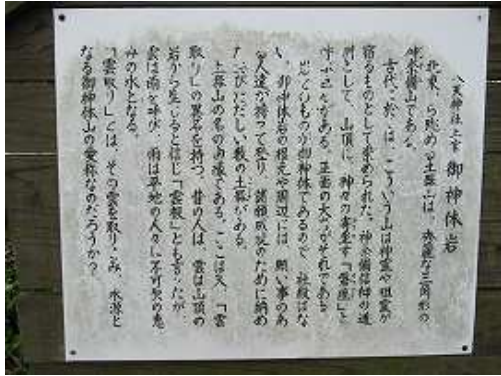 八天神社上宮 御神体岩
北東、ら眺め 土器山は、秀麗な三角形の
神奈備山である。
古代に於ては、こういう山は神霊や祖霊が
宿るものとして崇められた。神奈備信仰の遺
として、山頂に、神々の 「磐座」と
ある。正面の大 がそれである
ものが御神体であるので、社殿はな
い。御神体岩の根元や周辺には、願い事のあ
る人達が持って登り、諸願成就のために納め
た、おびただしい数の土器がある。
土器山の名の由縁である。ここは又、「雲
取り」の異名を持つ。昔の人は、雲は山頂の
岩から生じると信じ「雲根」とも言ったが、
雲は雨を呼び、雨は平地の人々に不可欠の恵
みの水となる。
「雲取り」とは、その雲を取りこみ、水源と
なる御神体山の愛称なのだろうか？